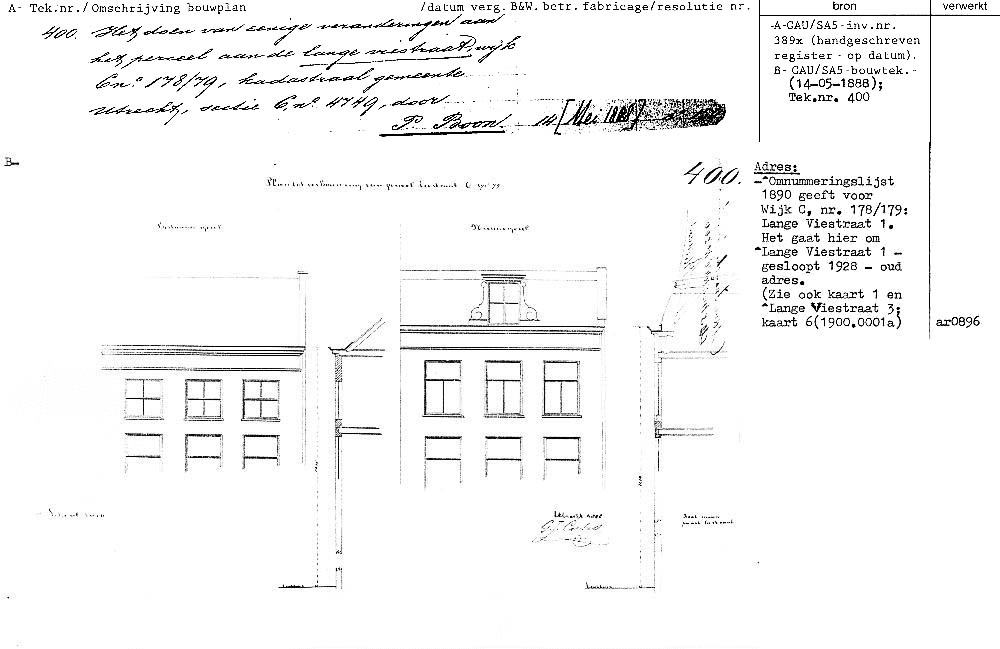 A- Tek.nr./Omschrijving bouwplan /datum verg. B&W. betr. fabricage/resolutie nr. bron verwerkt
400. Het doen van eenige veranderingen aan
het perceel aan de lange viestraat, wijk
C no. 178/79, kadastraal gemeente
Utrecht, sectie C no. 4749, door
P. Boon. 14 [Mei 1888]
-A-GAU/SA5-inv.nr.
389x (handgeschreven
register - op datum).
B- GAU/SA5-bouwtek.-
(14-05-1888);
Tek.nr. 400
B-
400.
Adres:
-^Omnummeringslijst
1890 geeft voor
Wijk C, nr. 178/179:
Lange Viestraat 1.
Het gaat hier om
^Lange Viestraat 1 -
gesloopt 1928 - oud
adres.
(Zie ook kaart 1 en
^Lange Viestraat 3;
kaart 6(1900.0001a) ar0896